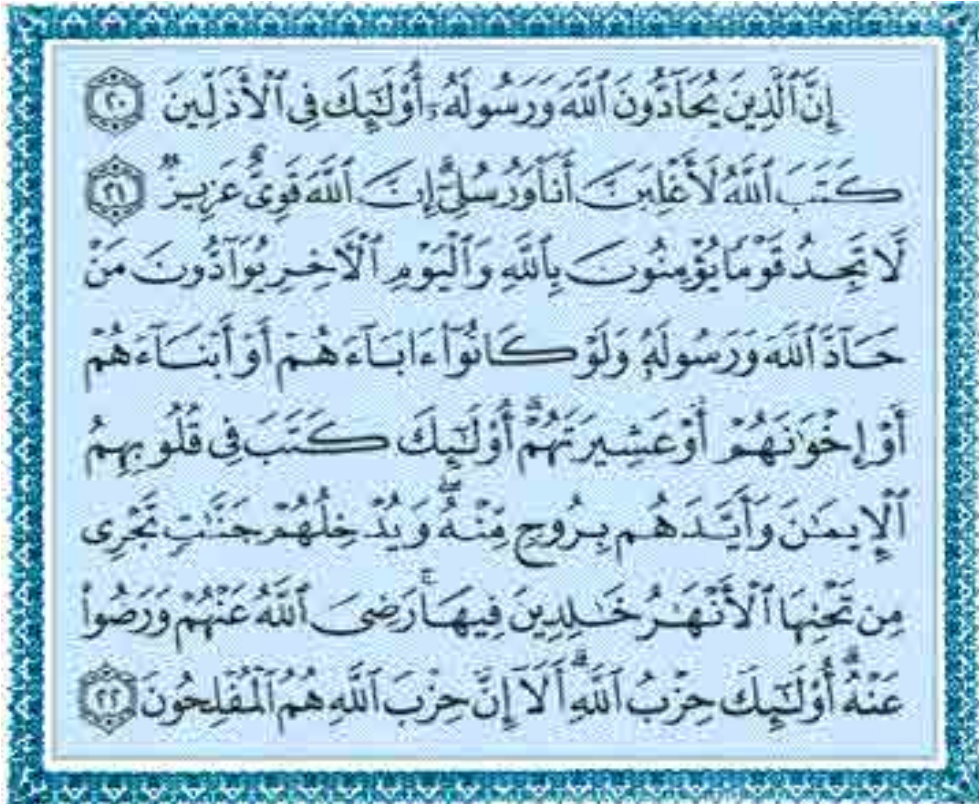 إِنَّ ٱلَّذِينَ يُحَآدُّونَ ٱللَّهَ وَرَسُولَهُۥٓ أُو۟لَٰٓئِكَ فِى ٱلْأَذَلِّينَ ٢٠
كَتَبَ ٱللَّهُ لَأَغْلِبَنَّ أَنَا۠ وَرُسُلِىٓ إِنَّ ٱللَّهَ قَوِىٌّ عَزِيزٌ ٢١
لَّا تَجِدُ قَوْمًا يُؤْمِنُونَ بِٱللَّهِ وَٱلْيَوْمِ ٱلْءَاخِرِ يُوَآدُّونَ مَنْ
حَآدَّ ٱللَّهَ وَرَسُولَهُۥ وَلَوْ كَانُوٓا۟ ءَابَآءَهُمْ أَوْ أَبْنَآءَهُمْ
أَوْ إِخْوَٰنَهُمْ أَوْ عَشِيرَتَهُمْ ۚ أُو۟لَٰٓئِكَ كَتَبَ فِى قُلُوبِهِمُ
ٱلْإِيمَٰنَ وَأَيَّدَهُم بِرُوحٍ مِّنْهُ ۖ وَيُدْخِلُهُمْ جَنَّٰتٍ تَجْرِى
مِن تَحْتِهَا ٱلْأَنْهَٰرُ خَٰلِدِينَ فِيهَا ۚ رَضِىَ ٱللَّهُ عَنْهُمْ وَرَضُوا۟
عَنْهُ ۚ أُو۟لَٰٓئِكَ حِزْبُ ٱللَّهِ ۚ أَلَآ إِنَّ حِزْبَ ٱللَّهِ هُمُ ٱلْمُفْلِحُونَ ٢٢